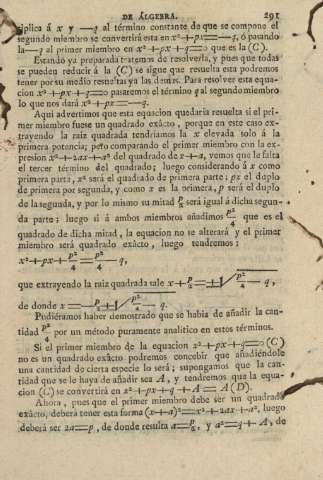 DE ÁLGEBRA. 291
tiplica á x y —q al término constante de que se compone el
segundo miembro se convertirá esta en x²+px=—q, ó pasando
la—q al primer miembro en x²+px+q=0 que es la (C).
Estando ya preparada tratemos de resolverla, y pues que todas
se pueden reducir á la (C) se sigue que resuelta esta podremos
tener por su medio resueltas ya las demas. Para resolver esta equa-
cion x²+px+q=0 pasaremos el término q al segundo miembro
lo que nos dará x²+px=—q.
Aqui advertimos que esta equacion quedaria resuelta si el pri-
mer miembro fuese un quadrado exâcto, porque en este caso ex-
trayendo la raiz quadrada tendriamos la x elevada solo á la
primera potencia; pero comparando el primer miembro con la ex-
presion x²+2ax+a² del quadrado de x+a, vemos que le falta
el tercer término del quadrado; luego considerando á x como
primera parte, x² será el quadrado de primera parte; px el duplo
de primera por segunda, y como x es la primera, p será el duplo
de la segunda, y por lo mismo su mitad p/2 será igual á dicha segun-
da parte; luego si á ambos miembros añadimos p²/4 que es el
quadrado de dicha mitad, la equacion no se alterará y el primer
miembro será quadrado exâcto, luego tendremos;
x²+px+p²/4=p²/4—q,
que extrayendo la raiz quadrada sale x+p/2=±√p²/4—q,
de donde x=—p/2±√p²/4—q.
Pudiéramos haber demostrado que se habia de añadir la can-
tidad p²/4 por un método puramente analitico en estos términos.
Si el primer miembro de la equacion x²+px+q=0 (C)
no es un quadrado exâcto podremos concebir que añadiéndole
una cantidad de cierta especie lo será; supongamos que la can-
tidad que se le haya de añadir sea A, y tendremos que la equa-
cion (C) se convertirá en x²+px+q+A=A (D).
Ahora, pues que el primer miembro debe ser un quadrado
exâcto, deberá tener esta forma (x+a)²=x²+2ax+a², luego
deberá ser 2a=p, de donde resulta a=p/2, y a²=q+A, de